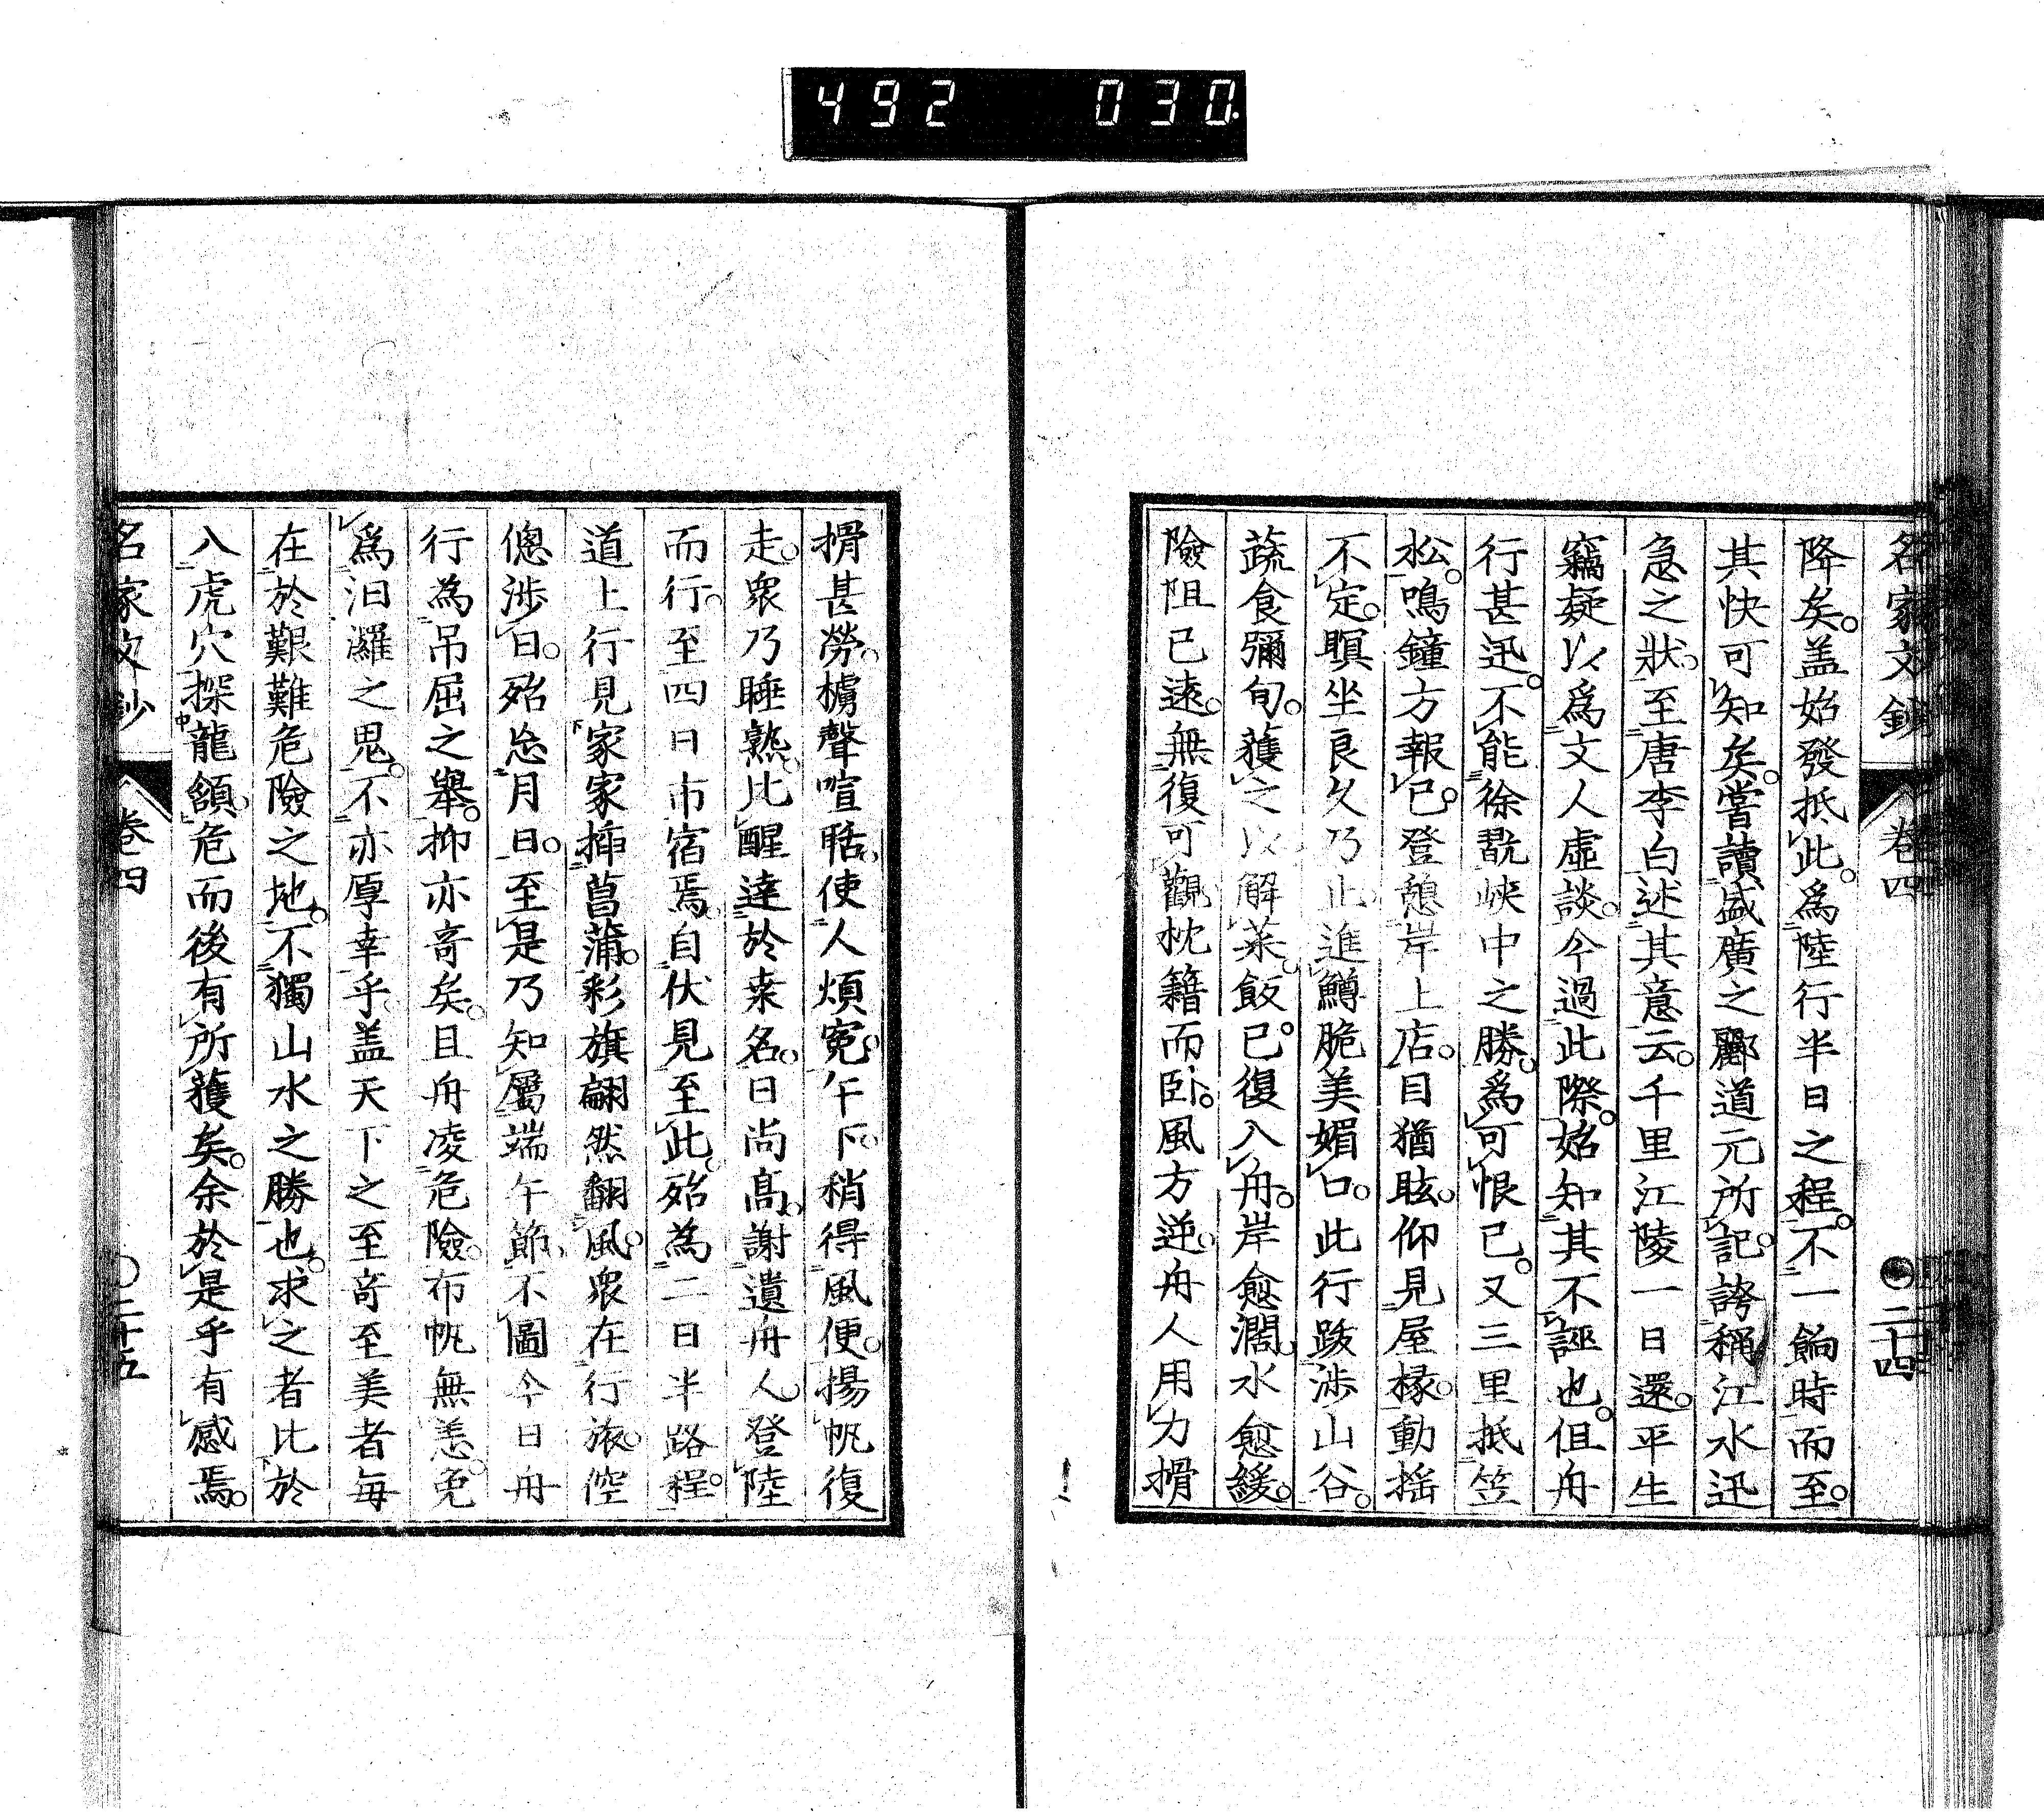 492 030
名家文鈔 卷四 二十四
降矣。盖始發抵此。爲陸行半日之程。不一餉時而至。
其快可知矣。嘗讀盛廣之酈道元所記。誇稱江水迅
急之狀。至唐李白述其意云。千里江陵一日還。平生
竊疑以爲文人虛談。今過此際。始知其不誣也。但舟
行甚迅。不能徐翫峽中之勝。爲可恨已。又三里抵笠
松。鳴鐘方報已。登憩岸上店。目猶眩。仰見屋椽。動搖
不定。瞑坐良久乃止。進鱒脆美媚口。此行跋涉山谷。
蔬食彌旬。獲之以解菜。飯已。復入舟。岸愈濶。水愈緩。
險阻已遠。無復可觀。枕籍而臥。風方逆。舟人用力搰
搰甚勞。櫓聲喧聒。使人煩寃。午下。稍得風便。揚帆復
走。衆乃睡熟。比醒達於桒名。日尚高。謝遣舟人。登陸
而行。至四日市宿焉。自伏見至此。殆爲二日半路程。
道上行見家家揷菖蒲。彩旗翩然翻風。衆在行旅。倥
傯涉日。殆怠月日。至是乃知屬端午節。不圖今日舟
行為吊屈之舉。抑亦奇矣。且舟凌危險。布帆無恙。免
爲汨灕之鬼。不亦厚幸乎。盖天下之至奇至美者。每
在於艱難危險之地。不獨山水之勝也。求之者比於
入虎穴探龍頷。危而後有所獲矣。余於是乎有感焉。
名家文鈔 卷四 二十五